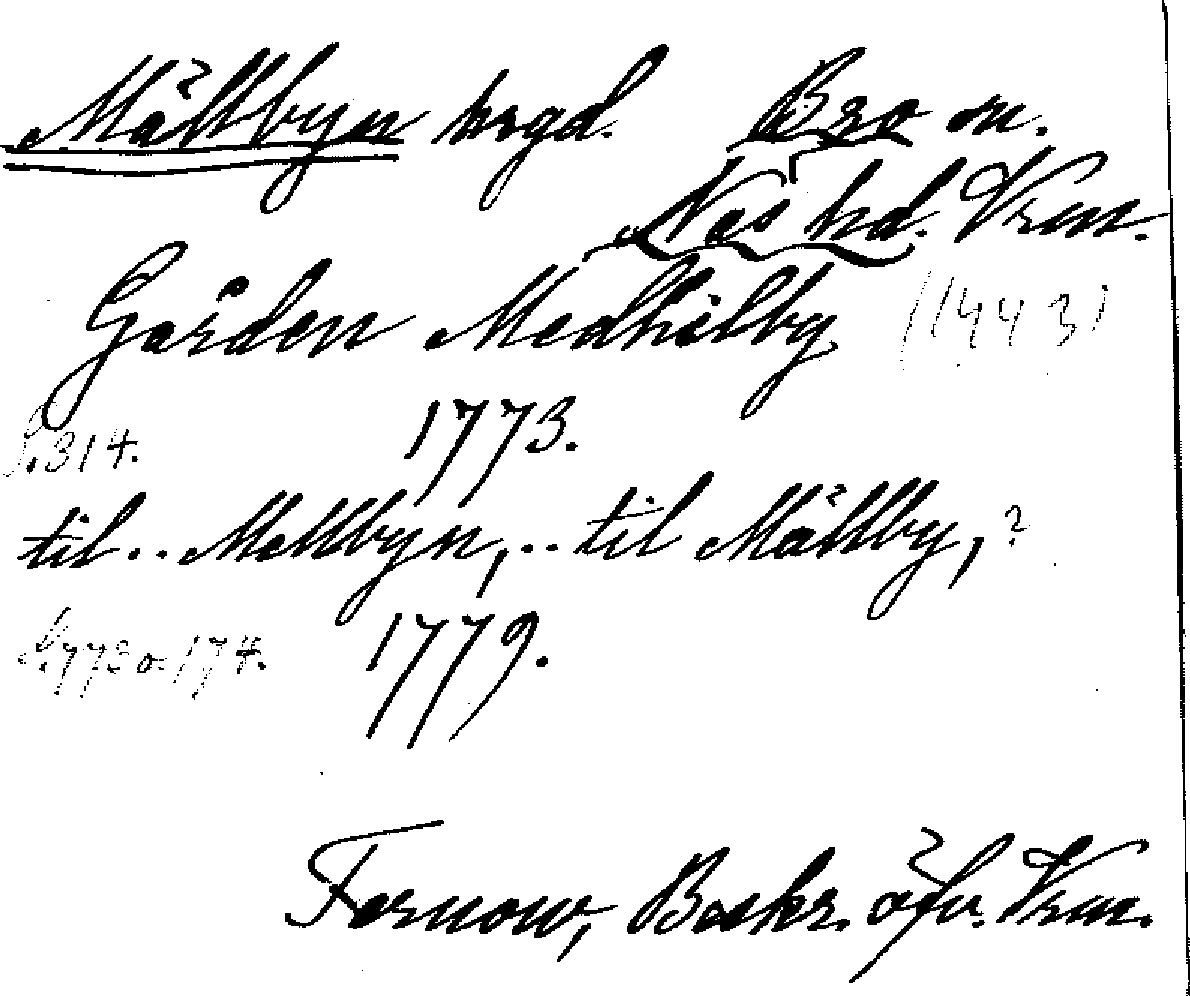 Mällbyn hrgd. Bro sn.
Näs hd. Vrm.
Gården Medhälby (1443)
S. 314. 1773.
til .. Mellbyn, .. til Mällby, ?
S. 773 o. 174. 1779.
Fernow, Beskr. öfv. Vrm.